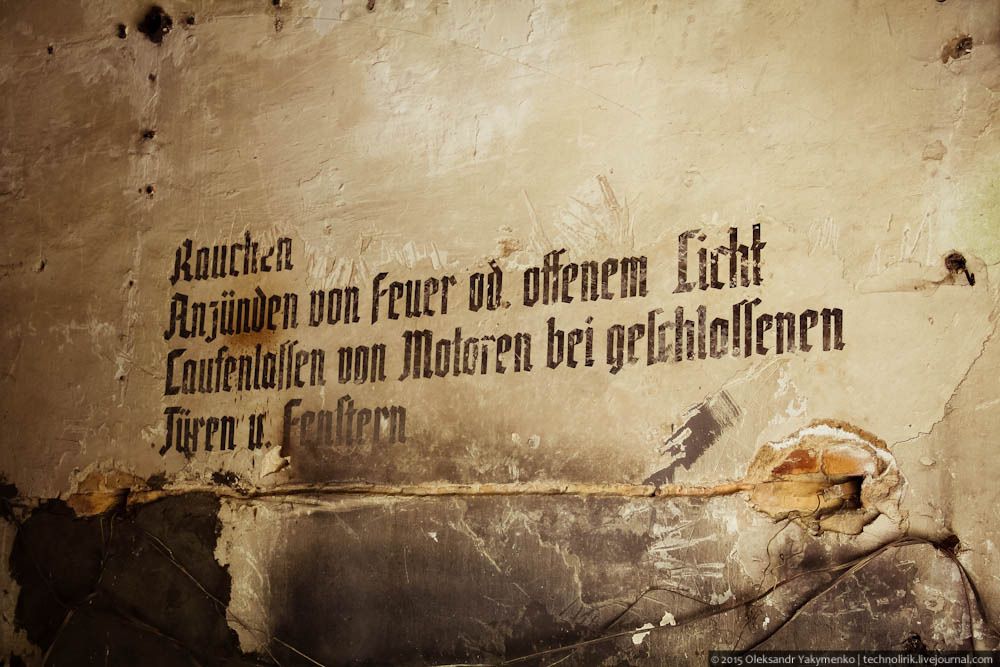 Rauchen
Anzünden von Feuer od. offenem Licht
Laufenlassen von Motoren bei geschlossenen
Türen u. Fenstern
© 2015 Oleksandr Yakymenko | technolirik.livejournal.com